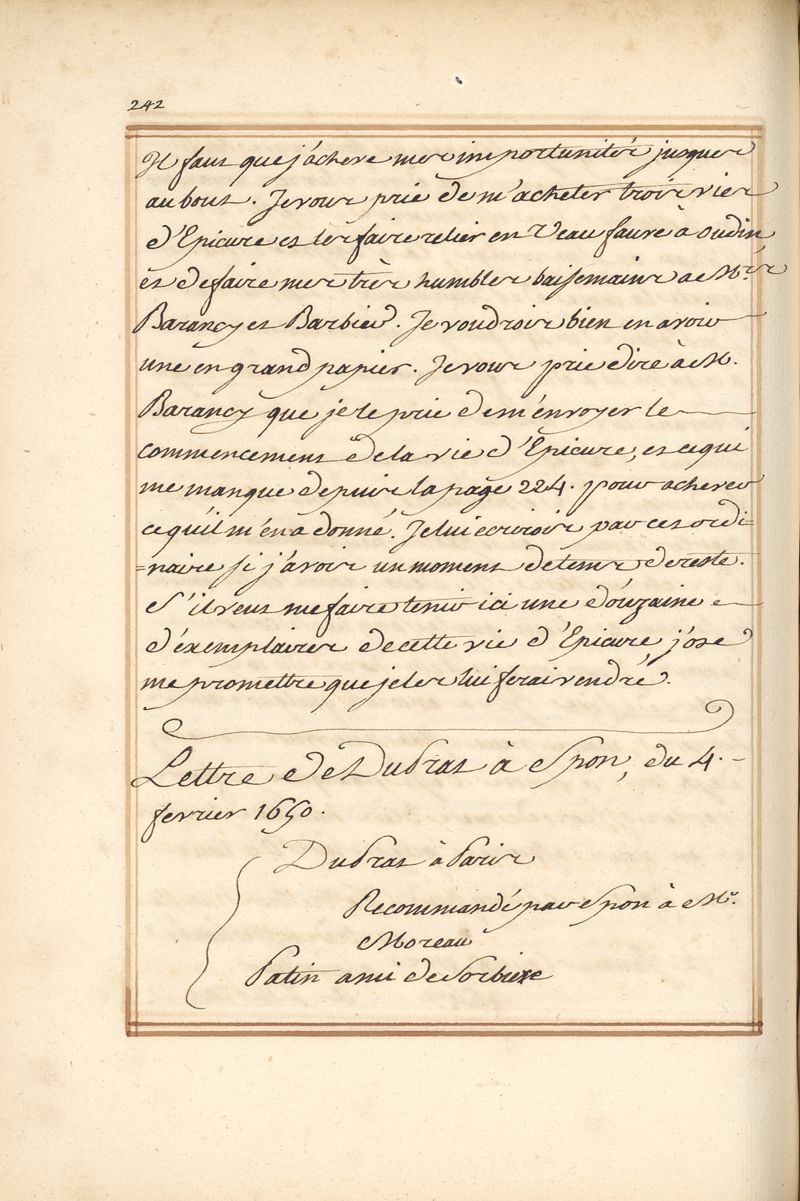 242
Il faut que j'achéve mes importunités jusques
au bout. Je vous prie de m'acheter trois vies
d'Epicure et les faire relier en Veau fauve à Oudin
et de faire mes très humbles baisemains a Mrs
Barancy et Barbier. Je voudrois bien en avoir
une en grand papier. Je vous prie dire à M.
Barancy que je le prie de m'envoyer le
commencement de la vie d'Epicure, et ce qui
me manque depuis la page 224. pour achever
ce qu'il m'en a donné. Je lui ecrirois par cet ordi=
=naire si j'avois un moment de tems de reste.
S'il veut me faire tenir ici une douzaine
d'éxemplaires de cette vie d'Epicure j'ose
me promettre que je les lui ferai vendre.
Lettre de DuPrat à Spon, du 4.
fevrier 1650.
DuPrat à Paris
Recommandé par Spon à Mr.
Moreau
Patin ami de Sorbiere